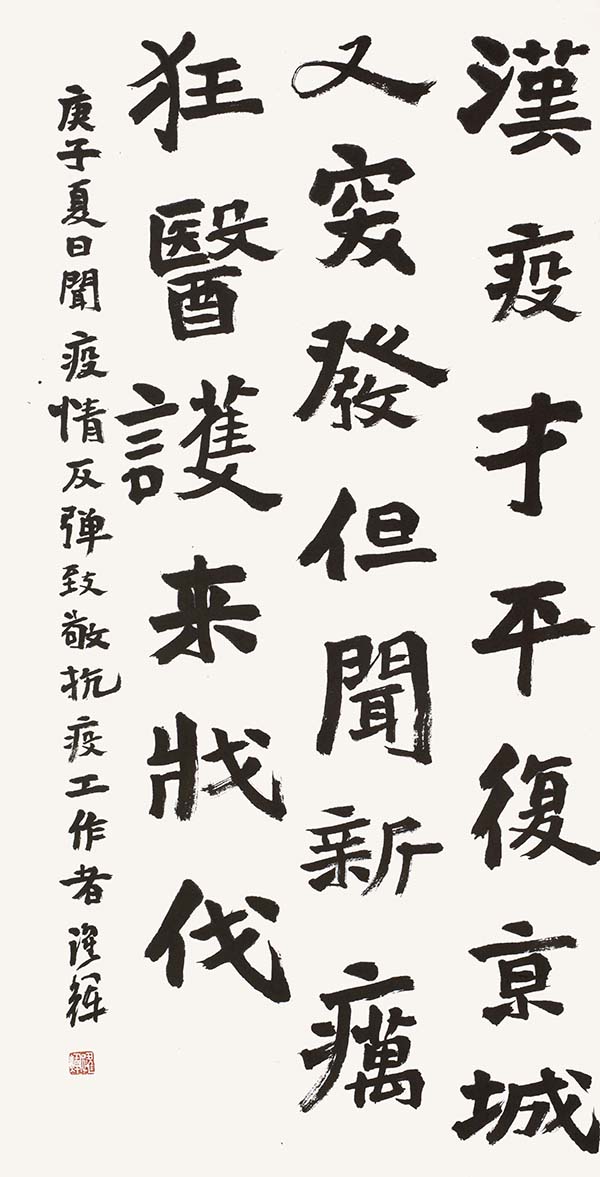 漢疫才平復亰城
又突發但聞新癘
狂醫護来戕伐
庚子夏日聞疫情反弹致敬抗疫工作者